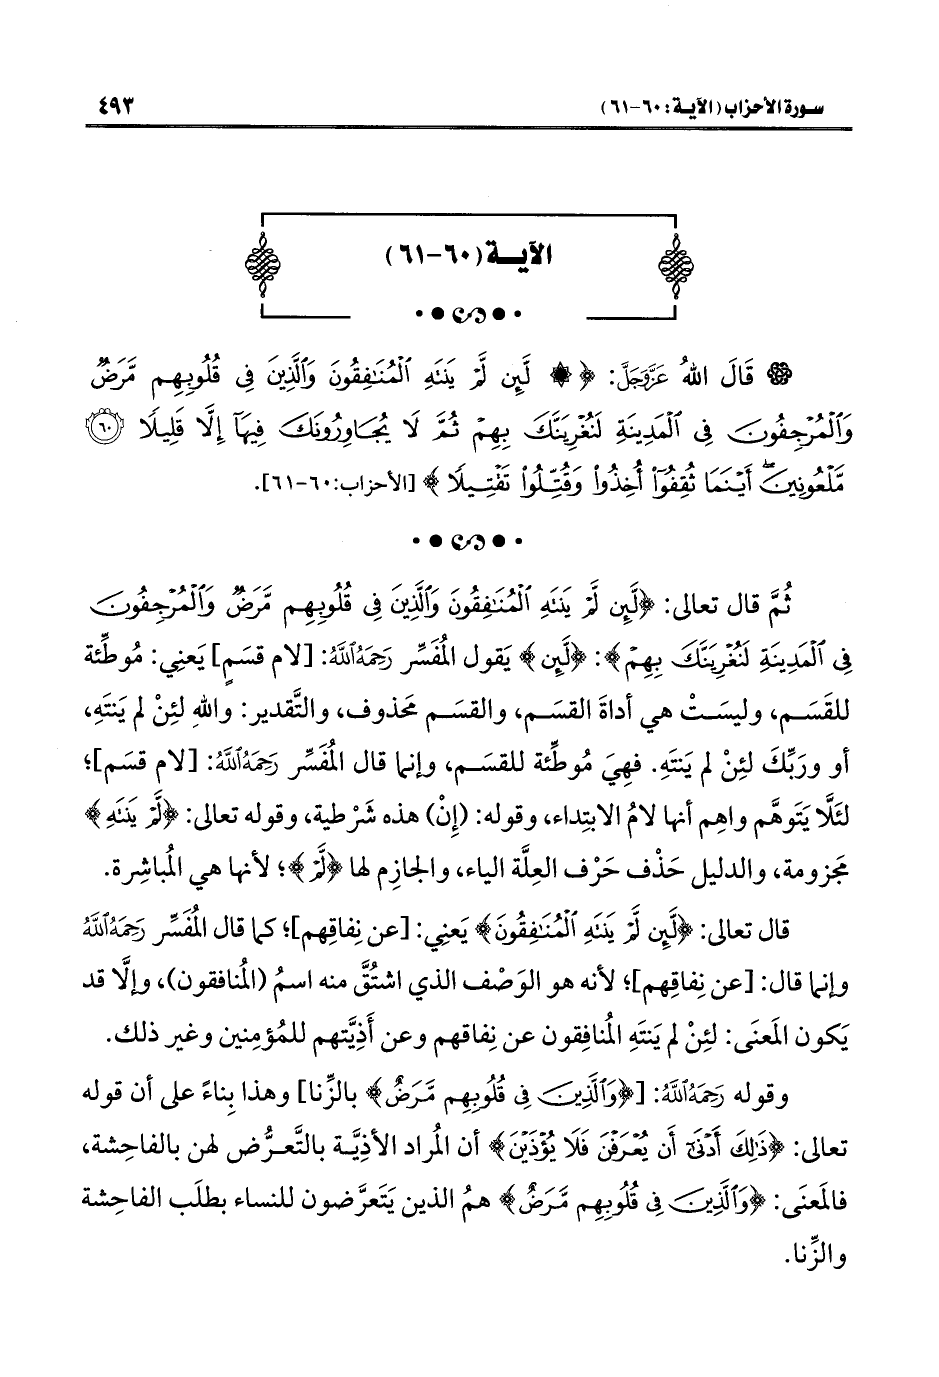 سورة الأحزاب (الآية: ٦٠-٦١)
٤٩٣
الآيـــة (٦٠-٦١)
قَالَ اللهُ عَزَّوَجَلَّ: ﴿۞ لَّئِن لَّمْ يَنتَهِ الْمُنَافِقُونَ وَالَّذِينَ فِي قُلُوبِهِم مَّرَضٌ
وَالْمُرْجِفُونَ فِي الْمَدِينَةِ لَنُغْرِيَنَّكَ بِهِمْ ثُمَّ لَا يُجَاوِرُونَكَ فِيهَا إِلَّا قَلِيلًا ٦٠
مَّلْعُونِينَ ۖ أَيْنَمَا ثُقِفُوا أُخِذُوا وَقُتِّلُوا تَقْتِيلًا﴾ [الأحزاب: ٦٠-٦١].
ثُمَّ قال تعالى: ﴿لَّئِن لَّمْ يَنتَهِ الْمُنَافِقُونَ وَالَّذِينَ فِي قُلُوبِهِم مَّرَضٌ وَالْمُرْجِفُونَ
فِي الْمَدِينَةِ لَنُغْرِيَنَّكَ بِهِمْ﴾: ﴿لَّئِن﴾ يَقول المُفَسِّر رَحِمَهُ اللَّهُ: [لام قسَمٍ] يَعنِي: مُوطِّئة
للقَسَم، وليسَتْ هي أداةَ القسَم، والقسَم محَذوف، والتَّقدير: واللهِ لئِنْ لم يَنتَهِ،
أو وربِّكَ لئِنْ لم يَنتَهِ. فهِيَ مُوطِّئة للقسَم، وإنما قال المُفَسِّر رَحِمَهُ اللَّهُ: [لام قسَم]؛
لئَلَّا يَتَوهَّم واهِم أنها لامُ الابتِداء، وقوله: (إِنْ) هذه شَرْطية، وقوله تعالى: ﴿لَّمْ يَنتَهِ﴾
مَجزومة، والدليل حَذْف حَرْف العِلَّة الياء، والجازِم لها ﴿لَّمْ﴾؛ لأنها هي المُباشِرة.
قال تعالى: ﴿لَّئِن لَّمْ يَنتَهِ الْمُنَافِقُونَ﴾ يَعنِي: [عن نِفاقِهم]؛ كما قال المُفَسِّر رَحِمَهُ اللَّهُ
وإنما قال: [عن نِفاقِهم]؛ لأنه هو الوَصْف الذي اشتُقَّ منه اسمُ (المُنافقون)، وإلَّا قد
يَكون المَعنَى: لئِنْ لم يَنتَهِ المُنافِقون عن نِفاقهم وعن أَذِيَّتهم للمُؤمِنين وغير ذلك.
وقوله رَحِمَهُ اللَّهُ: [﴿وَالَّذِينَ فِي قُلُوبِهِم مَّرَضٌ﴾ بالزِّنا] وهذا بِناءً على أن قوله
تعالى: ﴿ذَلِكَ أَدْنَى أَن يُعْرَفْنَ فَلَا يُؤْذَيْنَ﴾ أن المُراد الأذِيَّـة بالتَّعـرُّض لهن بالفاحِشة،
فالمَعنَى: ﴿وَالَّذِينَ فِي قُلُوبِهِم مَّرَضٌ﴾ همُ الذين يَتَعرَّضون للنساء بطلَب الفاحِشة
والزِّنا.